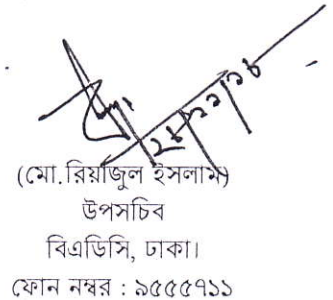 (মো. রিয়াজুল ইসলাম)
উপসচিব
বিএডিসি, ঢাকা।
ফোন নম্বর : ৯৫৫৫৭১১